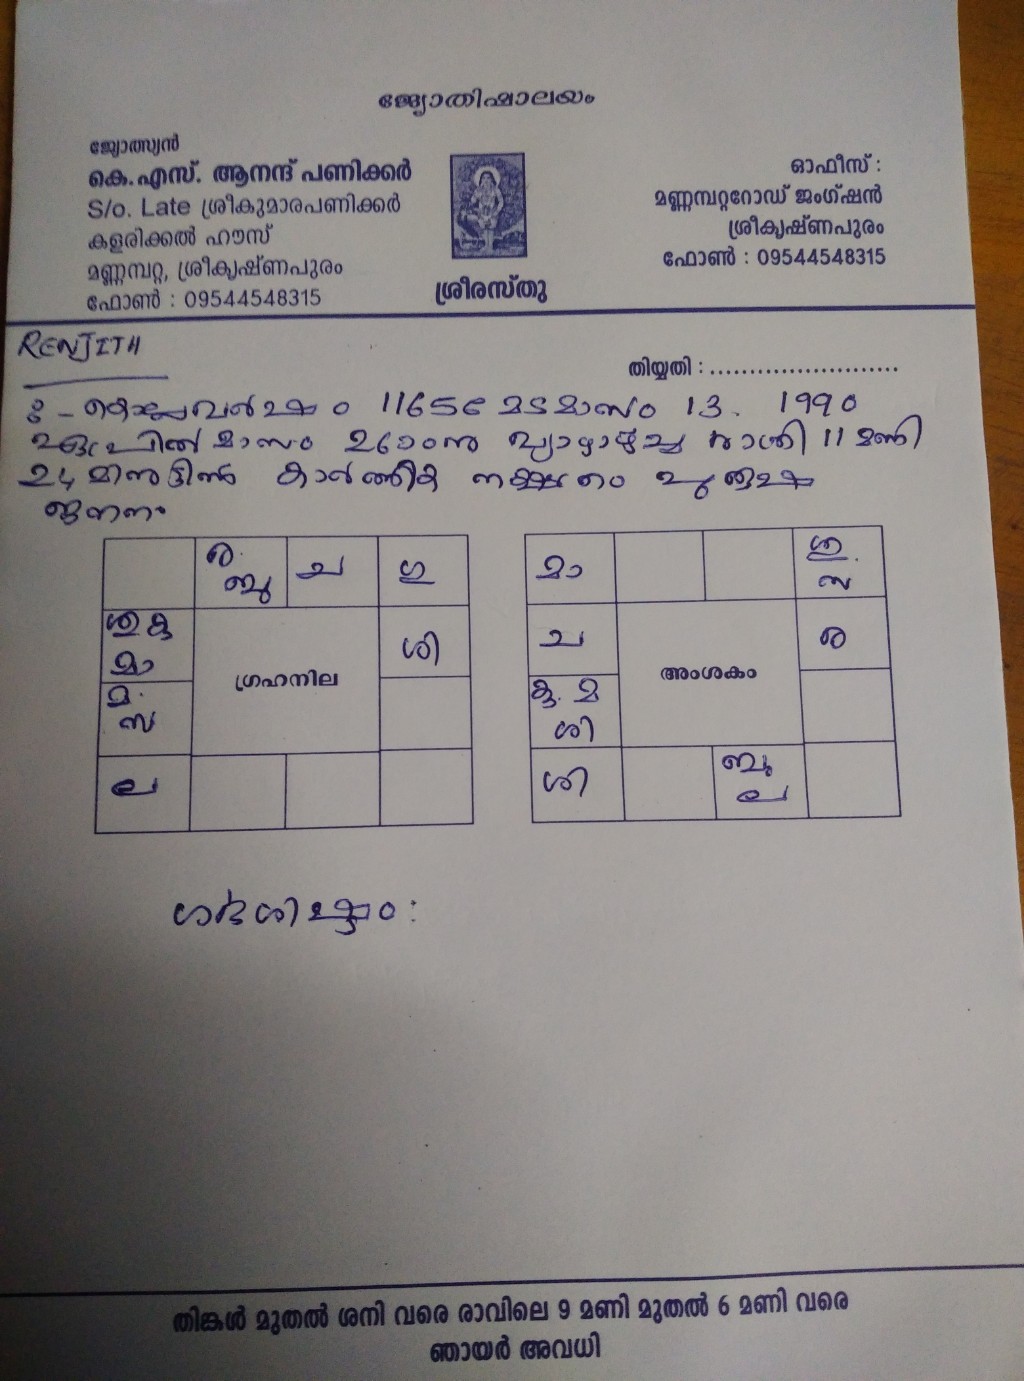 ജ്യോതിഷാലയം
ജ്യോത്സ്യൻ
കെ.എസ്. ആനന്ദ് പണിക്കർ
S/o. Late ശ്രീകുമാരപണിക്കർ
കളരിക്കൽ ഹൗസ്
മണ്ണമ്പറ്റ, ശ്രീകൃഷ്ണപുരം
ഫോൺ : 09544548315
ശ്രീരസ്തു
ഓഫീസ് :
മണ്ണമ്പറ്ററോഡ് ജംഗ്ഷൻ
ശ്രീകൃഷ്ണപുരം
ഫോൺ : 09544548315
RENJITH
തിയ്യതി : ........................
കൊല്ലവർഷം 1165 മേടമാസം 13. 1990
ഏപ്രിൽ മാസം 26ാംനു വ്യാഴാഴ്ച്ച രാത്രി 11 മണി
24 മിനുട്ടിൽ കാർത്തിക നക്ഷത്രം പുരുഷ
ജനനം
ര ബു ച ഗു
ശു കു
മാ
ശി
മ
സ
ല
ഗ്രഹനില
മാ ശു സ
ച ര
കു മ
ശി
ശി ബു
ല
അംശകം
ഗർഭശിഷ്ടം :
തിങ്കൾ മുതൽ ശനി വരെ രാവിലെ 9 മണി മുതൽ 6 മണി വരെ
ഞായർ അവധി